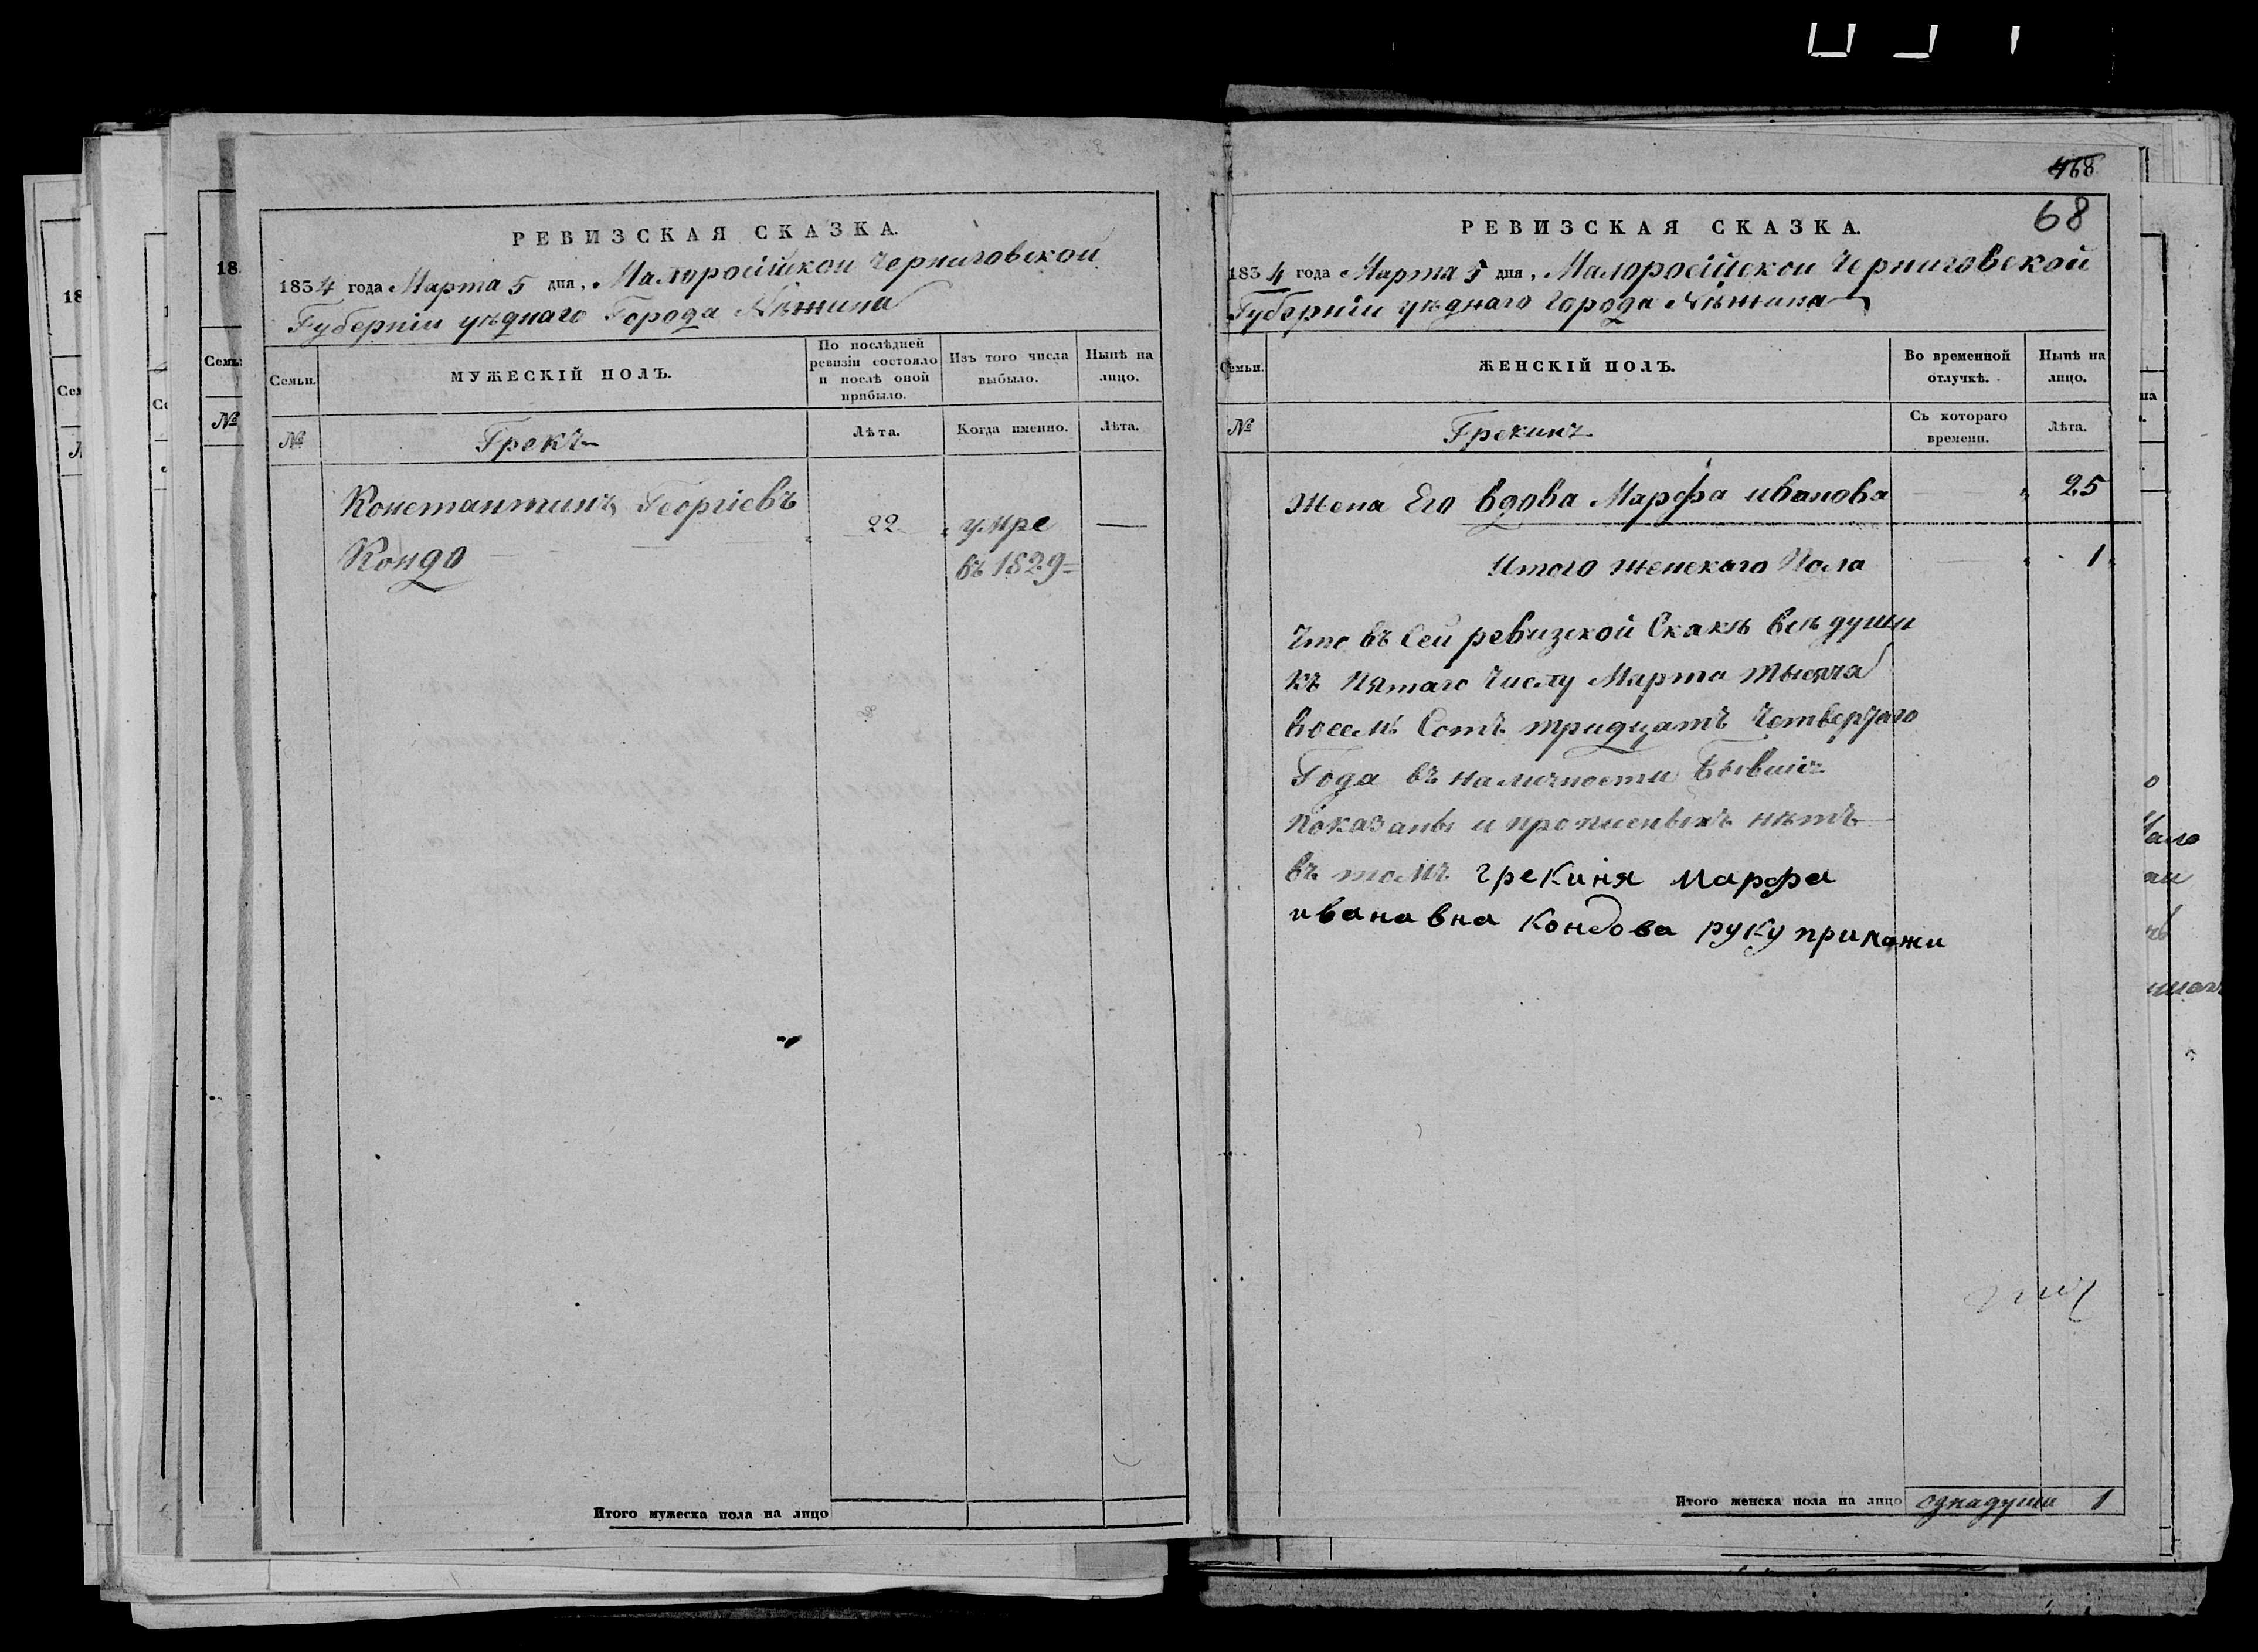 РЕВИЗСКАЯ СКАЗКА.
1834 года Марта 5 дня, Малоросійской Черниговской
Губерніи уѣднаго Города Нѣжина
Семьи.
МУЖЕСКІЙ ПОЛЪ.
По послѣдней
ревизіи состояло
и послѣ оной
прибыло.
Изъ того числа
выбыло.
Нынѣ на
лицо.
№
Грекъ
Лѣта.
Когда именно.
Лѣта.
Константинъ Георгіевъ
Кондо
22
умре
въ 1829
Итого мужеска пола на лицо
468
68
РЕВИЗСКАЯ СКАЗКА.
1834 года Марта 5 дня, Малоросійской Черниговской
Губерніи уѣднаго Города Нѣжина
Семьи.
ЖЕНСКІЙ ПОЛЪ.
Во временной
отлучкѣ.
Нынѣ на
лицо.
№
Грекинъ
Съ котораго
времени.
Лѣта.
Жена Его вдова Марфа иванова 25
Итого женскаго Пола 1
Что въ Сей ревизской Скакѣ всѣ души
къ Пятаго Числу Марта тысяча
восемъ Сотъ тридцатъ Четвертаго
Года въ наличности Бывшіе
показаны и прописныхъ нѣтъ
въ томъ грекиня Марфа
ивановна Кондова руку приложи
Итого женска пола на лицо однадуша 1